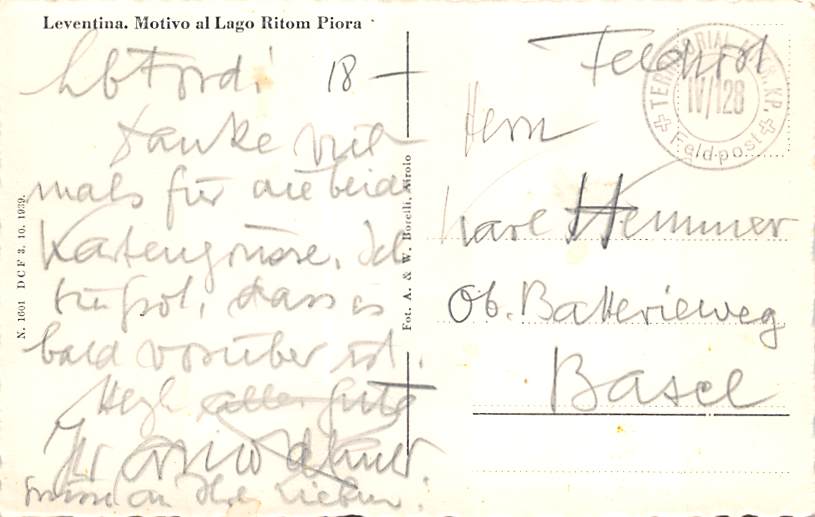 Leventina. Motivo al Lago Ritom Piora
18
danke viel
mals für die beiden
Kartengrüsse. Ich
bin froh, dass es
bald vorüber ist.
Herzl alles Gute
Ihr
Grüsse an Ihre Lieben.
N. 1601 DCF 3. 10. 1939.
Fot. A. & W. Borelli, Airolo
Feldpost
TERRITORIAL KP.
IV/128
Feldpost
Herrn
Karl Hemmer
Ob. Batterieweg
Basel